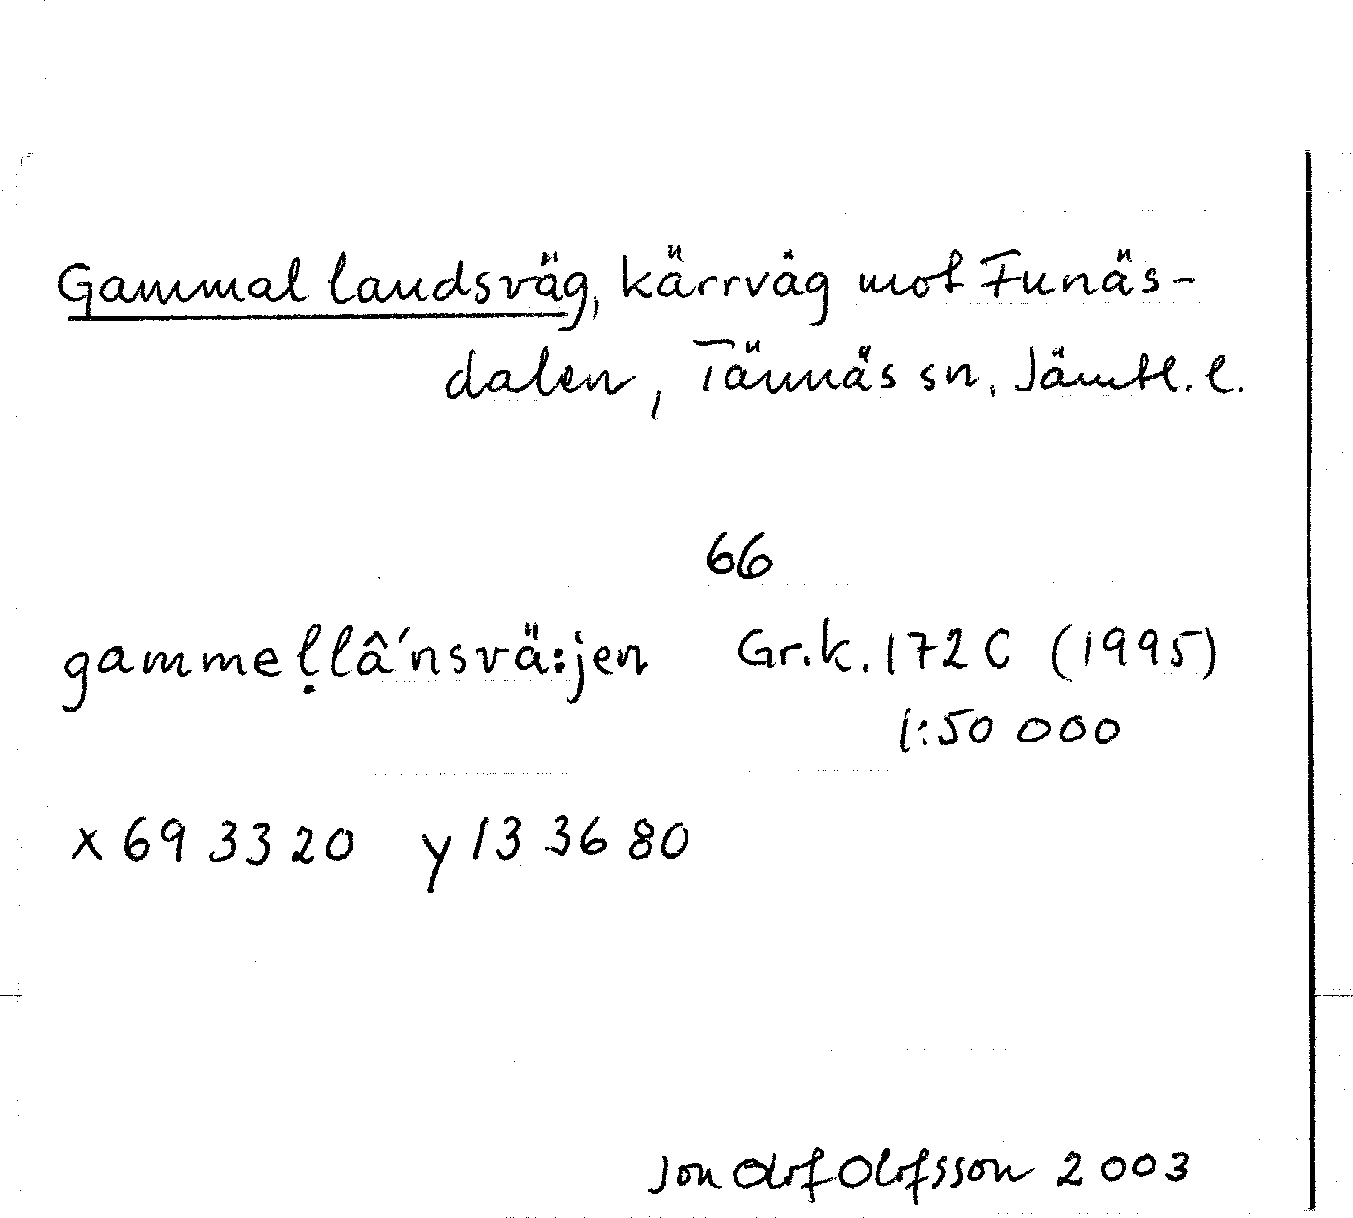 Gammal landsväg, kärrväg mot Funäs-
dalen, Tännäs sn, Jämtl. l.
66
gammeḷlâ'nsvä:jen Gr.k. 172 C (1995)
1:50 000
x 69 33 20 y 13 36 80
Jon Olof Olofsson 2003